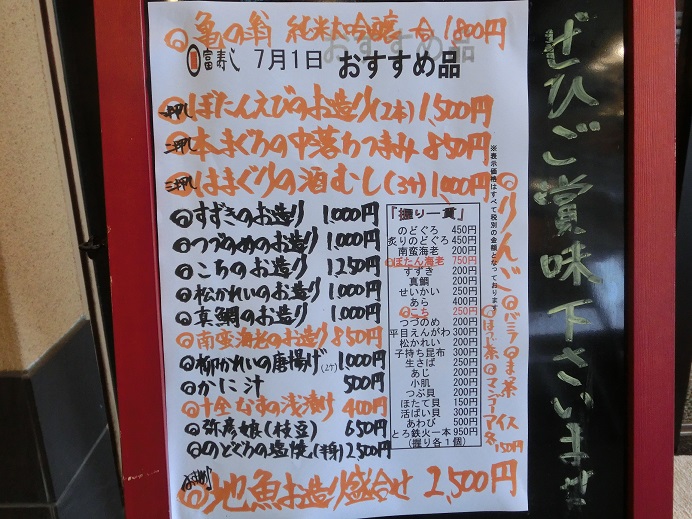 亀の翁 純米大吟醸 一合 1,800円
富寿し 7月1日 おすすめ品
一押し ぼたんえびのお造り(2本) 1,500円
二押し 本まぐろの中落ちつまみ 850円
三押し はまぐりの酒むし(3ケ) 1,000円
すずきのお造り 1,000円
つづのめのお造り 1,000円
こちのお造り 1,250円
松かれいのお造り 1,000円
真鯛のお造り 1,000円
南蛮海老のお造り 850円
柳かれいの唐揚げ(2ケ) 1,000円
かに汁 500円
十全なすの浅漬け 400円
弥彦娘(枝豆) 650円
のどぐろの塩焼(半身) 2,500円
地魚お造り盛合せ 2,500円
『握り一貫』
のどぐろ 450円
炙りのどぐろ 450円
南蛮海老 200円
ぼたん海老 750円
すずき 200円
真鯛 200円
せいかい 250円
あら 400円
こち 250円
つづのめ 200円
平目えんがわ 300円
松かれい 200円
子持ち昆布 300円
生さば 250円
あじ 200円
小肌 200円
つぶ貝 200円
ほたて貝 150円
活ばい貝 300円
あわび 500円
とろ鉄火一本 950円
(握り各1個)
※表示価格はすべて税別の金額となっております
りんご
バニラ
ま茶
ほうじ茶
マンゴーアイス
各150円
ぜひご賞味下さいませ